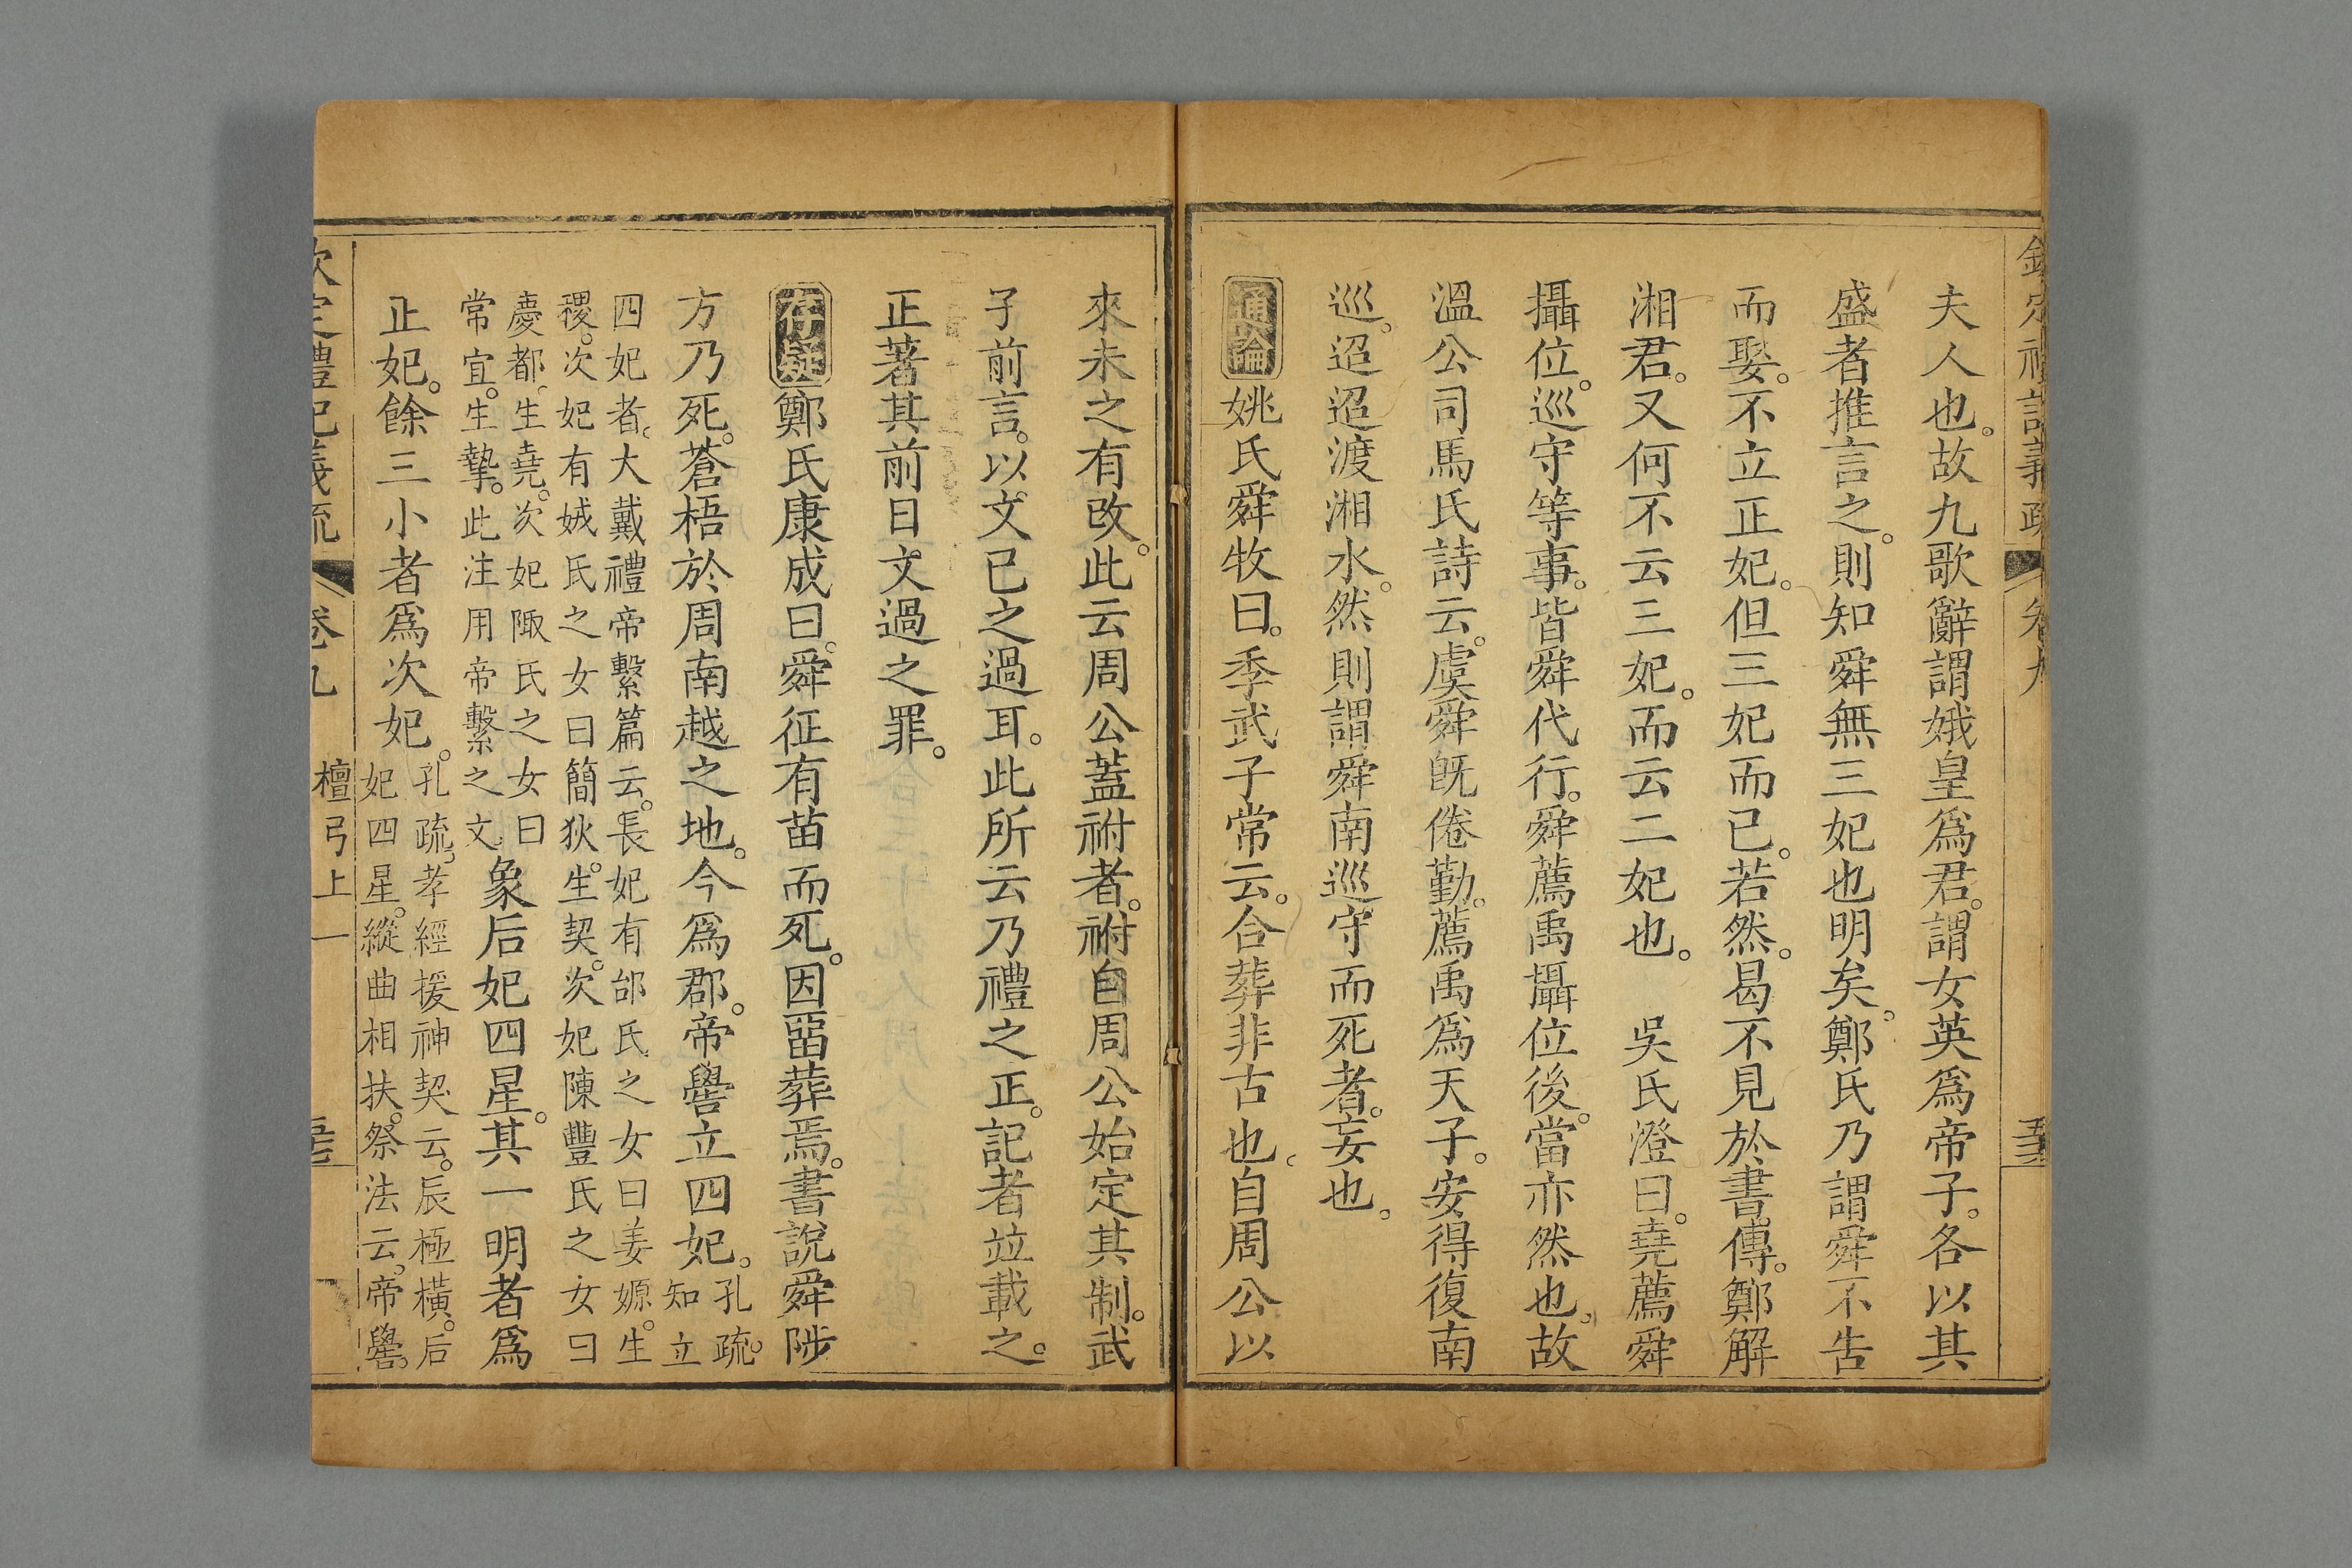 欽定禮記義疏 卷九 五三
夫人也。故九歌辭謂娥皇爲君。謂女英爲帝子。各以其
盛者推言之。則知舜無三妃也明矣。鄭氏乃謂舜不告
而娶。不立正妃。但三妃而已。若然。曷不見於書傳。鄭解
湘君。又何不云三妃。而云二妃也。 吳氏澄曰。堯薦舜
攝位。巡守等事。皆舜代行。舜薦禹攝位後。當亦然也。故
溫公司馬氏詩云。虞舜旣倦勤。薦禹爲天子。安得復南
巡。迢迢渡湘水。然則謂舜南巡守而死者。妄也。
通論姚氏舜牧曰。季武子常云。合葬非古也。自周公以
來未之有改。此云周公蓋祔者。祔自周公始定其制。武
子前言。以文已之過耳。此所云乃禮之正。記者竝載之。
正著其前日文過之罪。
存疑鄭氏康成曰。舜征有苗而死。因畱葬焉。書說舜陟
方乃死。蒼梧於周南越之地。今爲郡。帝嚳立四妃。孔疏。
知立
四妃者。大戴禮帝繫篇云。長妃有邰氏之女曰姜嫄。生
稷。次妃有娀氏之女曰簡狄。生契。次妃陳豐氏之女曰
慶都。生堯。次妃陬氏之女曰
常宜。生摯。此注用帝繫之文。象后妃四星。其一明者爲
正妃。餘三小者爲次妃。孔疏。孝經援神契云。辰極橫。后
妃四星。縱曲相扶。祭法云。帝嚳。
欽定禮記義疏 卷九 檀弓上一